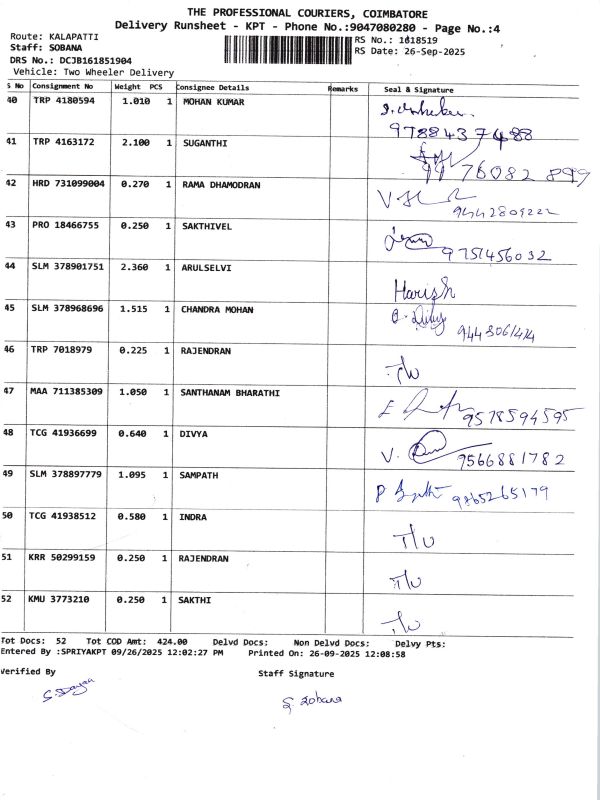 THE PROFESSIONAL COURIERS, COIMBATORE
Delivery Runsheet - KPT - Phone No.:9047080280 - Page No.:4
Route: KALAPATTI
RS No.: 1618519
Staff: SOBANA
RS Date: 26-Sep-2025
DRS No.: DCJB161851904
Vehicle: Two Wheeler Delivery
S No Consignment No Weight PCS Consignee Details Remarks Seal & Signature
40 TRP 4180594 1.010 1 MOHAN KUMAR
9788437488
41 TRP 4163172 2.100 1 SUGANTHI
99 76082 899
42 HRD 731099004 0.270 1 RAMA DHAMODRAN
9442809222
43 PRO 18466755 0.250 1 SAKTHIVEL
9751456032
44 SLM 378901751 2.360 1 ARULSELVI
Harish
45 SLM 378968696 1.515 1 CHANDRA MOHAN
46 TRP 7018979 0.225 1 RAJENDRAN
T/U
47 MAA 711385309 1.050 1 SANTHANAM BHARATHI
9578594595
48 TCG 41936699 0.640 1 DIVYA
V. 9566881782
49 SLM 378897779 1.095 1 SAMPATH
P 9865265179
50 TCG 41938512 0.580 1 INDRA
T/U
51 KRR 50299159 0.250 1 RAJENDRAN
T/U
52 KMU 3773210 0.250 1 SAKTHI
T/U
Tot Docs: 52 Tot COD Amt: 424.00 Delvd Docs: Non Delvd Docs: Delvy Pts:
Entered By :SPRIYAKPT 09/26/2025 12:02:27 PM Printed On: 26-09-2025 12:08:58
Verified By Staff Signature
S. Sobana